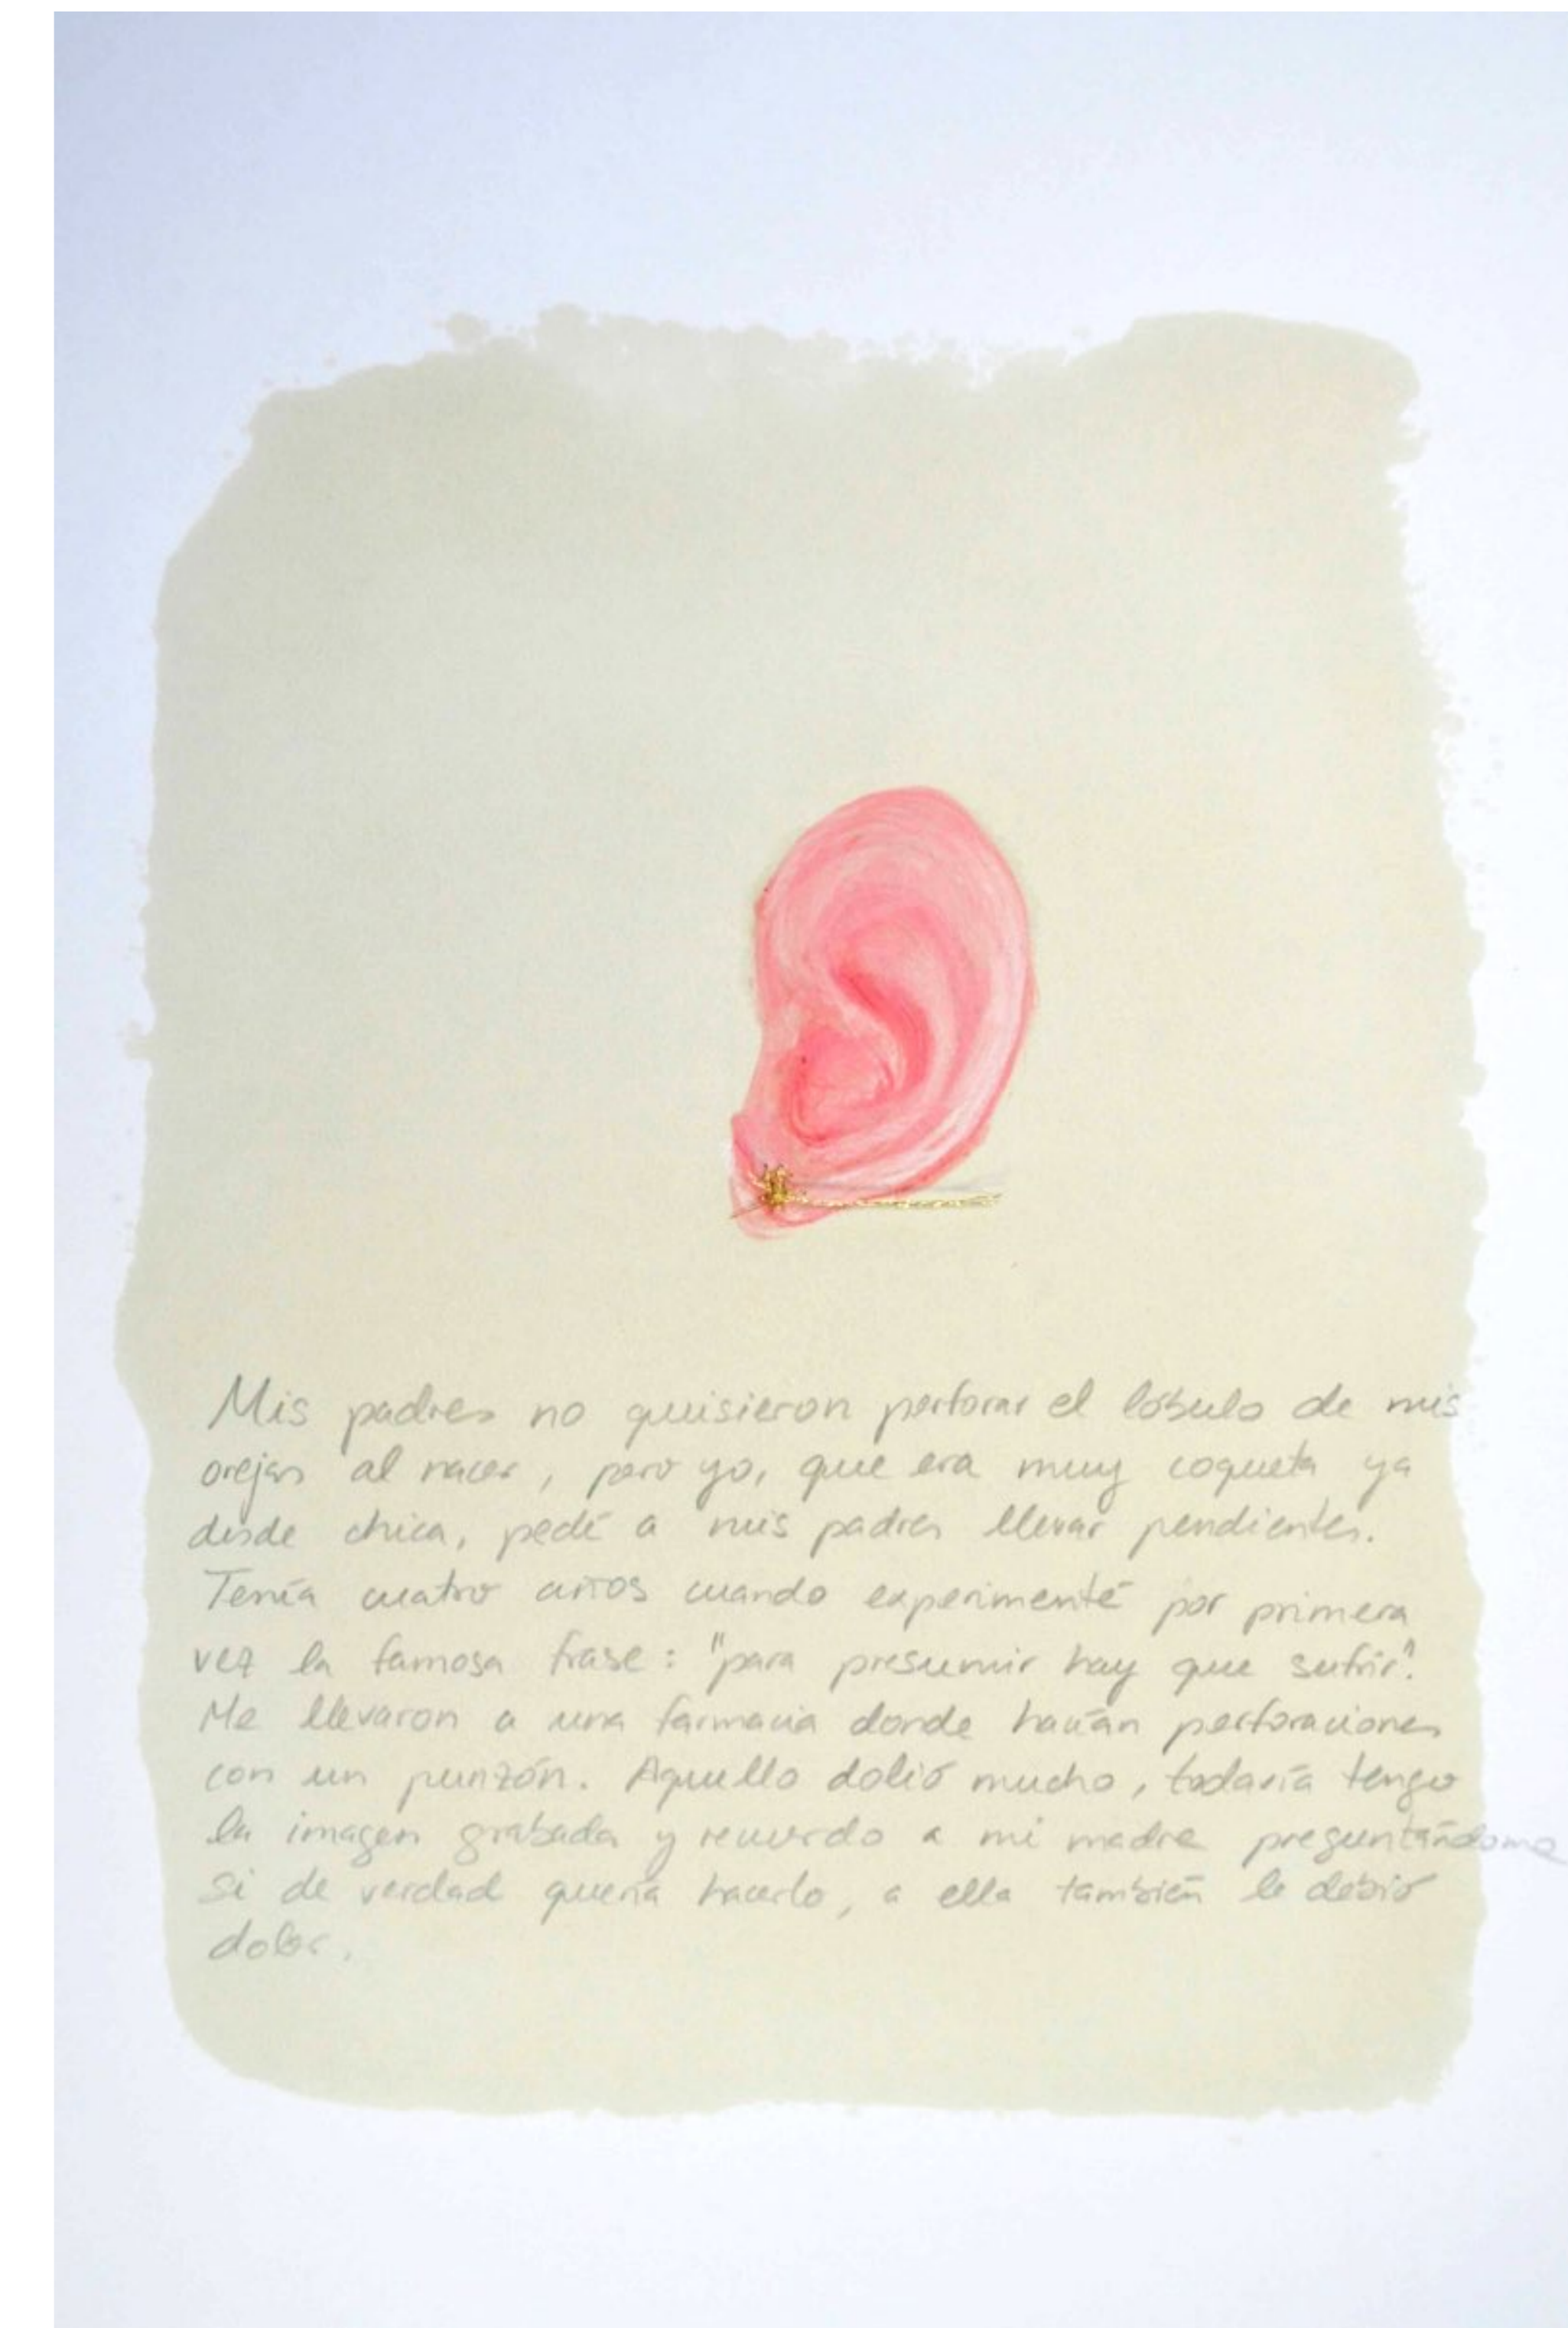 Mis padres no quisieron perforar el lóbulo de mis
orejas al nacer, pero yo, que era muy coqueta ya
desde chica, pedí a mis padres llevar pendientes.
Tenía cuatro años cuando experimenté por primera
vez la famosa frase: "para presumir hay que sufrir".
Me llevaron a una farmacia donde hacían perforaciones
con un punzón. Aquello dolió mucho, todavía tengo
la imagen grabada y recuerdo a mi madre preguntándome
si de verdad quería hacerlo, a ella también le debió
doler.